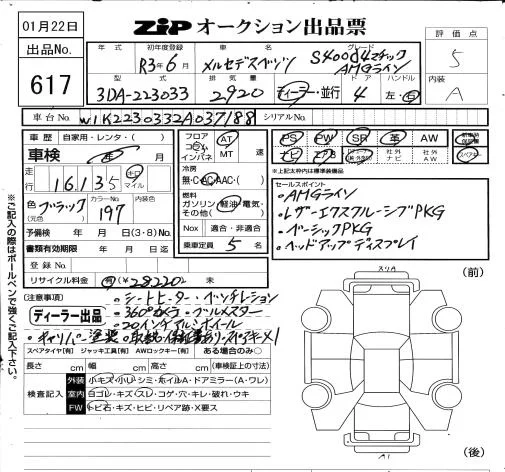 01月22日
ZIP オークション出品票
評価点
5
内装
A
出品No.
617
年式
初年度登録
R3年6月
車名
メルセデスベンツ
グレード
S400d4マチック
AMGライン
型式
3DA-223033
排気量
2920
ディーラー・並行
ドア
4
ハンドル
左・右
車台No.
W1K2230332A037188
シリアルNo.
車歴 自家用・レンタ・( )
車検 年 月
走行 16,135 キロ マイル
色(元色) ブラック
カラーNo. 197
内装色
予備検 年 月 日(3・8)No.
書類有効期限 年 月 日迄
登録No.
リサイクル料金 有(¥28,220) 未
フロア コラム インパネ AT MT 速
冷房
無・C・AC・AAC・( )
燃料
ガソリン・軽油・電気・その他( )
Nox 適合・非適合
乗車定員 5名
PS PW SR 革 AW
ナビ エアB 社外ナビ 社外AW
*上記太枠内は標準装備品
セールスポイント
・AMGライン
・レザーエクスクルーシブPKG
・ベーシックPKG
・ヘッドアップディスプレイ
*ご記入の際はボールペンで強くご記入下さい。
(注意事項)
ディーラー出品
・シートヒーター・ベンチレーション
・360°カメラ・ブルメスター
・20インチアルミホイール
・キャリパー塗装・取説・保証書あり・スペアキー×1
スペアタイヤ[有] ジャッキ工具[有] AWロックキー[有] ある場合のみ○
長さ cm 幅 cm 高さ cm (車検証上の寸法)
検査記入
外装 小キズ・小リ・シミ・ホイルA・ドアミラー(A・ワレ)
室内 ヨゴレ・キズ・スレ・コゲ・穴・キレ・破れ・ウキ
FW トビ石・キズ・ヒビ・リペア跡・X要ス
スリA
(前)
A1
(後)